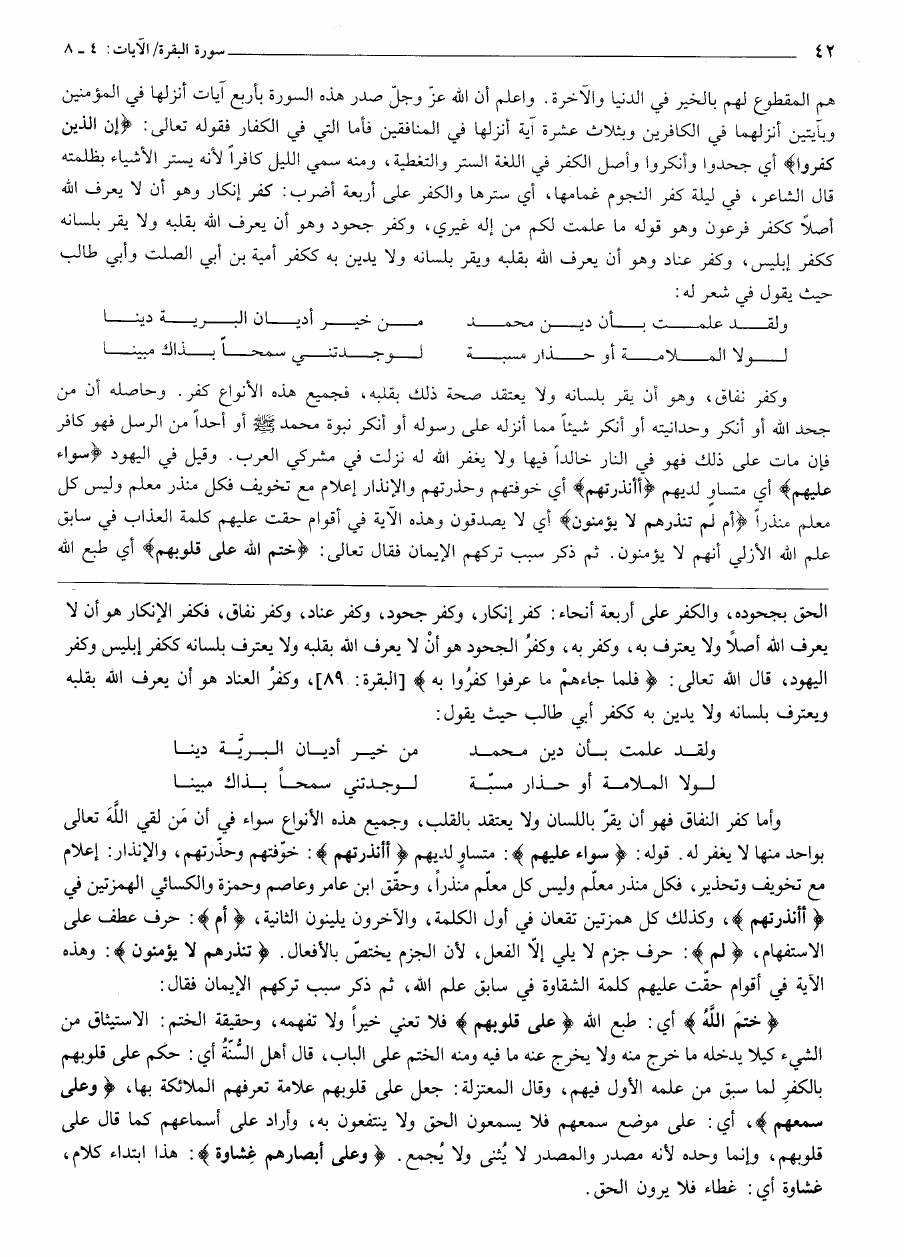 ٤٢ سورة البقرة/ الآيات: ٤ ـ ٨
هم المقطوع لهم بالخير في الدنيا والآخرة. واعلم أن الله عزّ وجلّ صدر هذه السورة بأربع آيات أنزلها في المؤمنين
وبآيتين أنزلهما في الكافرين وبثلاث عشرة آية أنزلها في المنافقين فأما التي في الكفار فقوله تعالى: ﴿إن الذين
كفروا﴾ أي جحدوا وأنكروا وأصل الكفر في اللغة الستر والتغطية، ومنه سمي الليل كافراً لأنه يستر الأشياء بظلمته
قال الشاعر، في ليلة كفر النجوم غمامها، أي سترها والكفر على أربعة أضرب: كفر إنكار وهو أن لا يعرف الله
أصلاً ككفر فرعون وهو قوله ما علمت لكم من إله غيري، وكفر جحود وهو أن يعرف الله بقلبه ولا يقر بلسانه
ككفر إبليس، وكفر عناد وهو أن يعرف الله بقلبه ويقر بلسانه ولا يدين به ككفر أمية بن أبي الصلت وأبي طالب
حيث يقول في شعر له:
ولقد علمت بأن دين محمد من خير أديان البرية دينا
لولا الملامة أو حذار مسبة لوجدتني سمحاً بذاك مبينا
وكفر نفاق، وهو أن يقر بلسانه ولا يعتقد صحة ذلك بقلبه، فجميع هذه الأنواع كفر. وحاصله أن من
جحد الله أو أنكر وحدانيته أو أنكر شيئاً مما أنزله على رسوله أو أنكر نبوة محمد ﷺ أو أحداً من الرسل فهو كافر
فإن مات على ذلك فهو في النار خالداً فيها ولا يغفر الله له نزلت في مشركي العرب. وقيل في اليهود ﴿سواء
عليهم﴾ أي متساوٍ لديهم ﴿أأنذرتهم﴾ أي خوفتهم وحذرتهم والإنذار إعلام مع تخويف فكل منذر معلم وليس كل
معلم منذراً ﴿أم لم تنذرهم لا يؤمنون﴾ أي لا يصدقون وهذه الآية في أقوام حقت عليهم كلمة العذاب في سابق
علم الله الأزلي أنهم لا يؤمنون. ثم ذكر سبب تركهم الإيمان فقال تعالى: ﴿ختم الله على قلوبهم﴾ أي طبع الله
الحق بجحوده، والكفر على أربعة أنحاء: كفر إنكار، وكفر جحود، وكفر عناد، وكفر نفاق، فكفر الإنكار هو أن لا
يعرف الله أصلاً ولا يعترف به، وكفر به، وكفرُ الجحود هو أنْ لا يعرف الله بقلبه ولا يعترف بلسانه ككفر إبليس وكفر
اليهود، قال الله تعالى: ﴿فلما جاءهمْ ما عرفوا كفرُوا به﴾ [البقرة: ٨٩]، وكفرُ العناد هو أن يعرف الله بقلبه
ويعترف بلسانه ولا يدين به ككفر أبي طالب حيث يقول:
ولقد علمت بأن دين محمد من خير أديان البريَّة دينا
لولا الملامة أو حذار مسبّة لوجدتني سمحاً بذاك مبينا
وأما كفر النفاق فهو أن يقرّ باللسان ولا يعتقد بالقلب، وجميع هذه الأنواع سواء في أن مَن لقي اللَّهَ تعالى
بواحد منها لا يغفر له. قوله: ﴿سواء عليهم﴾: متساوٍ لديهم ﴿أأنذرتهم﴾: خوّفتهم وحذّرتهم، والإنذار: إعلام
مع تخويف وتحذير، فكل منذر معلّم وليس كل معلّم منذراً، وحقّق ابن عامر وعاصم وحمزة والكسائي الهمزتين في
﴿أأنذرتهم﴾، وكذلك كل همزتين تقعان في أول الكلمة، والآخرون يلينون الثانية، ﴿أم﴾: حرف عطف على
الاستفهام، ﴿لم﴾: حرف جزم لا يلي إلّا الفعل، لأن الجزم يختصّ بالأفعال. ﴿تنذرهم لا يؤمنون﴾: وهذه
الآية في أقوام حقّت عليهم كلمة الشقاوة في سابق علم الله، ثم ذكر سبب تركهم الإيمان فقال:
﴿ختمَ اللَّهُ﴾ أي: طبع الله ﴿على قلوبهم﴾ فلا تعني خيراً ولا تفهمه، وحقيقة الختم: الاستيثاق من
الشيء كيلا يدخله ما خرج منه ولا يخرج عنه ما فيه ومنه الختم على الباب، قال أهل السُّنَّةُ أي: حكم على قلوبهم
بالكفرِ لما سبق من علمه الأول فيهم، وقال المعتزلة: جعل على قلوبهم علامة تعرفهم الملائكة بها، ﴿وعلى
سمعهم﴾، أي: على موضع سمعهم فلا يسمعون الحق ولا ينتفعون به، وأراد على أسماعهم كما قال على
قلوبهم، وإنما وحده لأنه مصدر والمصدر لا يُثنى ولا يُجمع. ﴿وعلى أبصارهم غِشاوة﴾: هذا ابتداء كلام،
غشاوة أي: غطاء فلا يرون الحق.